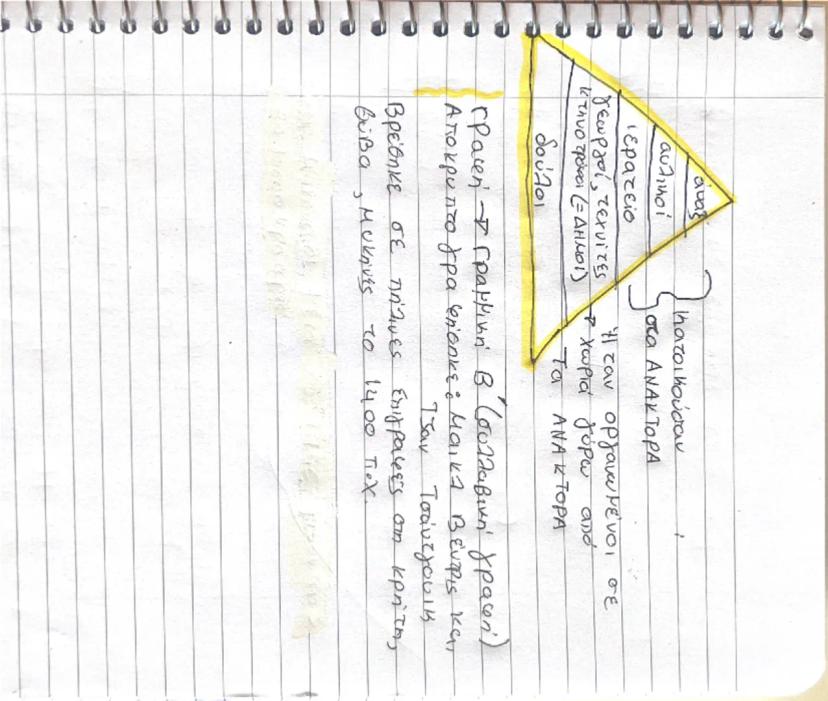 άναξ
αυλικοί
ιερατείο
γεωργοί, τεχνίτες
κτηνοτρόφοι (= ΔΗΜΟΙ)
δούλοι
κατοικούσαν
στα ΑΝΑΚΤΟΡΑ
Ήταν οργανωμένοι σε
→ χωριά γύρω από
τα ΑΝΑΚΤΟΡΑ
Γραφή → Γραμμική Β' (συλλαβική γραφή)
Αποκρυπτογραφήθηκε: Μαικλ Βέντρις και
Τζων Τσάντγουικ
Βρέθηκε σε πήλινες επιγραφές στη Κρήτη,
Θήβα, Μυκήνες το 1400 π.Χ.